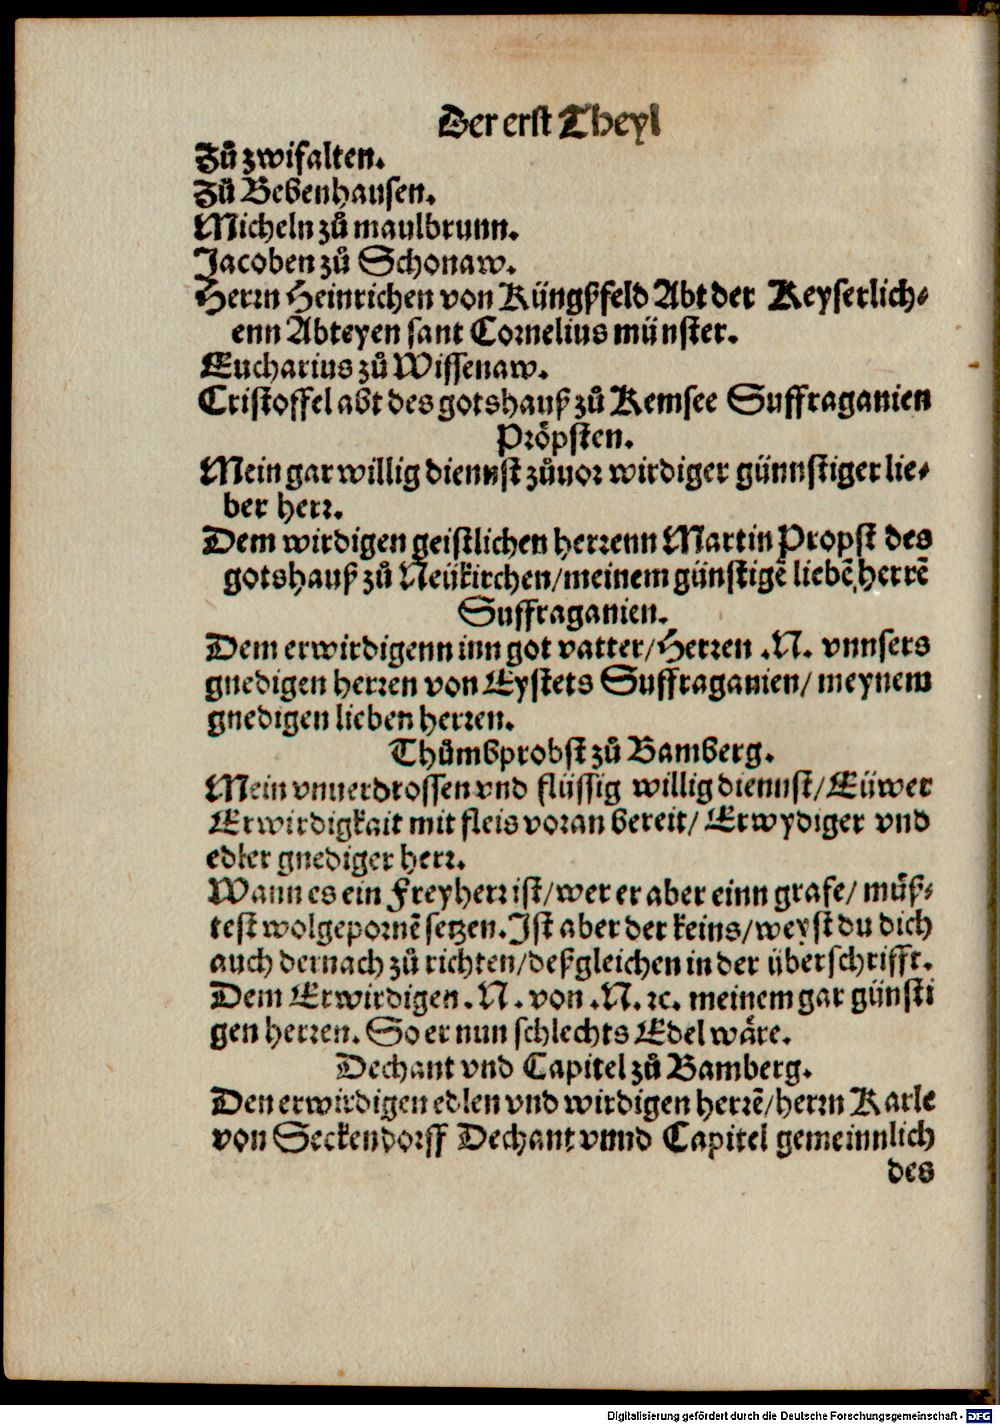 Der erst Theyl
Zů zwifalten.
Zů Bebenhausen.
Micheln zů maulbrunn.
Jacoben zů Schonaw.
Herrn Heinrichen von Küngßfeld Abt der Keyserlich⸗
enn Abteyen sant Cornelius münster.
Eucharius zů Wissenaw.
Cristoffel abt des gotshauß zů Kemsee Suffraganien
Prôpsten.
Mein gar willig diennst zůuor wirdiger günnstiger lie⸗
ber herr.
Dem wirdigen geistlichen herrenn Martin Propst des
gotshauß zů Neükirchen/meinem günstigẽ liebẽ herrẽ
Suffraganien.
Dem erwirdigenn inn got vatter/Herren .N. vnnsers
gnedigen herren von Eystets Suffraganien/ meynem
gnedigen lieben herren.
Thůmbprobst zů Bamberg.
Mein vnuerdrossen vnd flüssig willig diennst/Eüwer
Erwirdigkait mit fleis voran bereit/ Erwydiger vnd
edler gnediger herr.
Wann es ein Freyherr ist/wer er aber einn grafe/ můß⸗
test wolgepornẽ setzen. Ist aber der keins/weyst du dich
auch dernach zů richten/deßgleichen in der überschrifft.
Dem Erwirdigen .N. von .N. ꝛc. meinem gar günsti
gen herren. So er nun schlechts Edel wåre.
Dechant vnd Capitel zů Bamberg.
Den erwirdigen edlen vnd wirdigen herrẽ/herrn Karle
von Seckendorff Dechant vnnd Capitel gemeinnlich
des
Digitalisierung gefördert durch die Deutsche Forschungsgemeinschaft - DFG